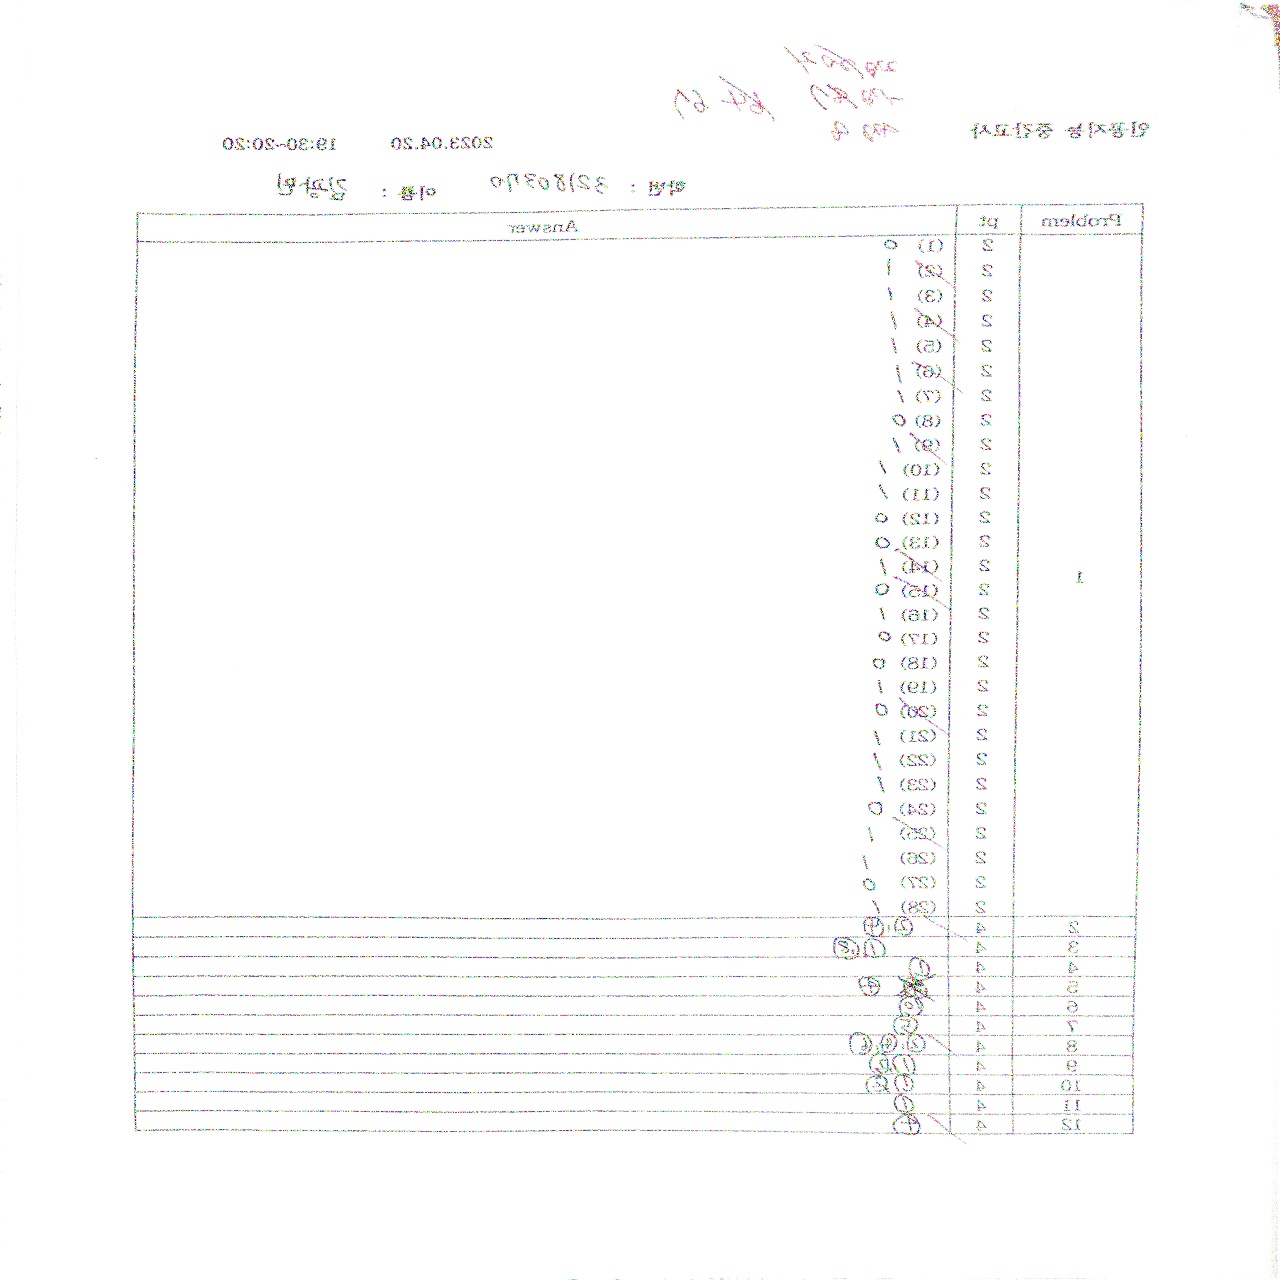 인공지능 중간고사 2023.04.20 19:30~20:20
학번 : 32180370 이름 :
Problem pt Answer
1
2 (1) 0
2 (2) 1
2 (3) 1
2 (4) 1
2 (5) 1
2 (6) 1
2 (7) 1
2 (8) 0
2 (9) 1
2 (10) 1
2 (11) 1
2 (12) 0
2 (13) 0
2 (14) 1
2 (15) 0
2 (16) 1
2 (17) 0
2 (18) 0
2 (19) 1
2 (20) 0
2 (21) 1
2 (22) 1
2 (23) 1
2 (24) 0
2 (25) 1
2 (26) 1
2 (27) 0
2 (28) 1
2 4
3 4
4 4 ①
5 4 ④
6 4
7 4
8 4
9 4
10 4
11 4
12 4 ④